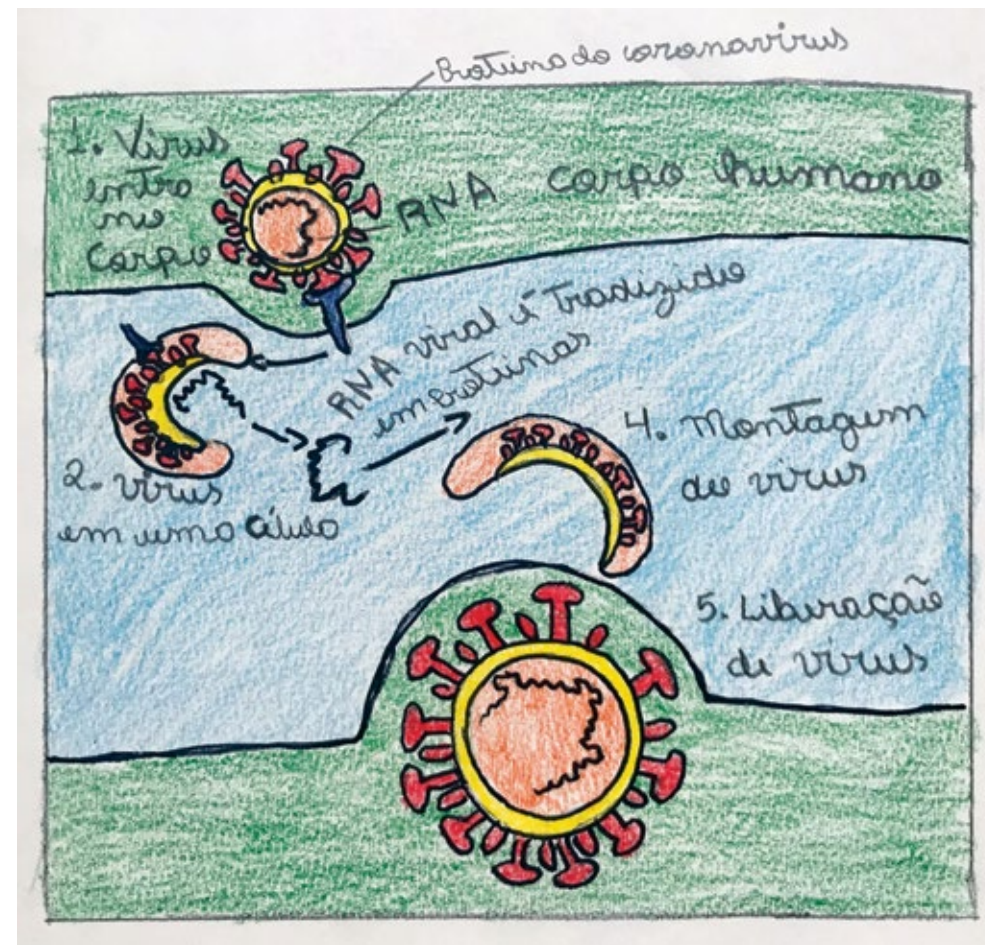 Proteina do coronavirus
1. Virus
entra
no
Corpo
RNA
corpo humano
RNA viral é Tradizido
em proteinas
2. virus
em uma célula
4. Montagem
de virus
5. Liberação
de virus